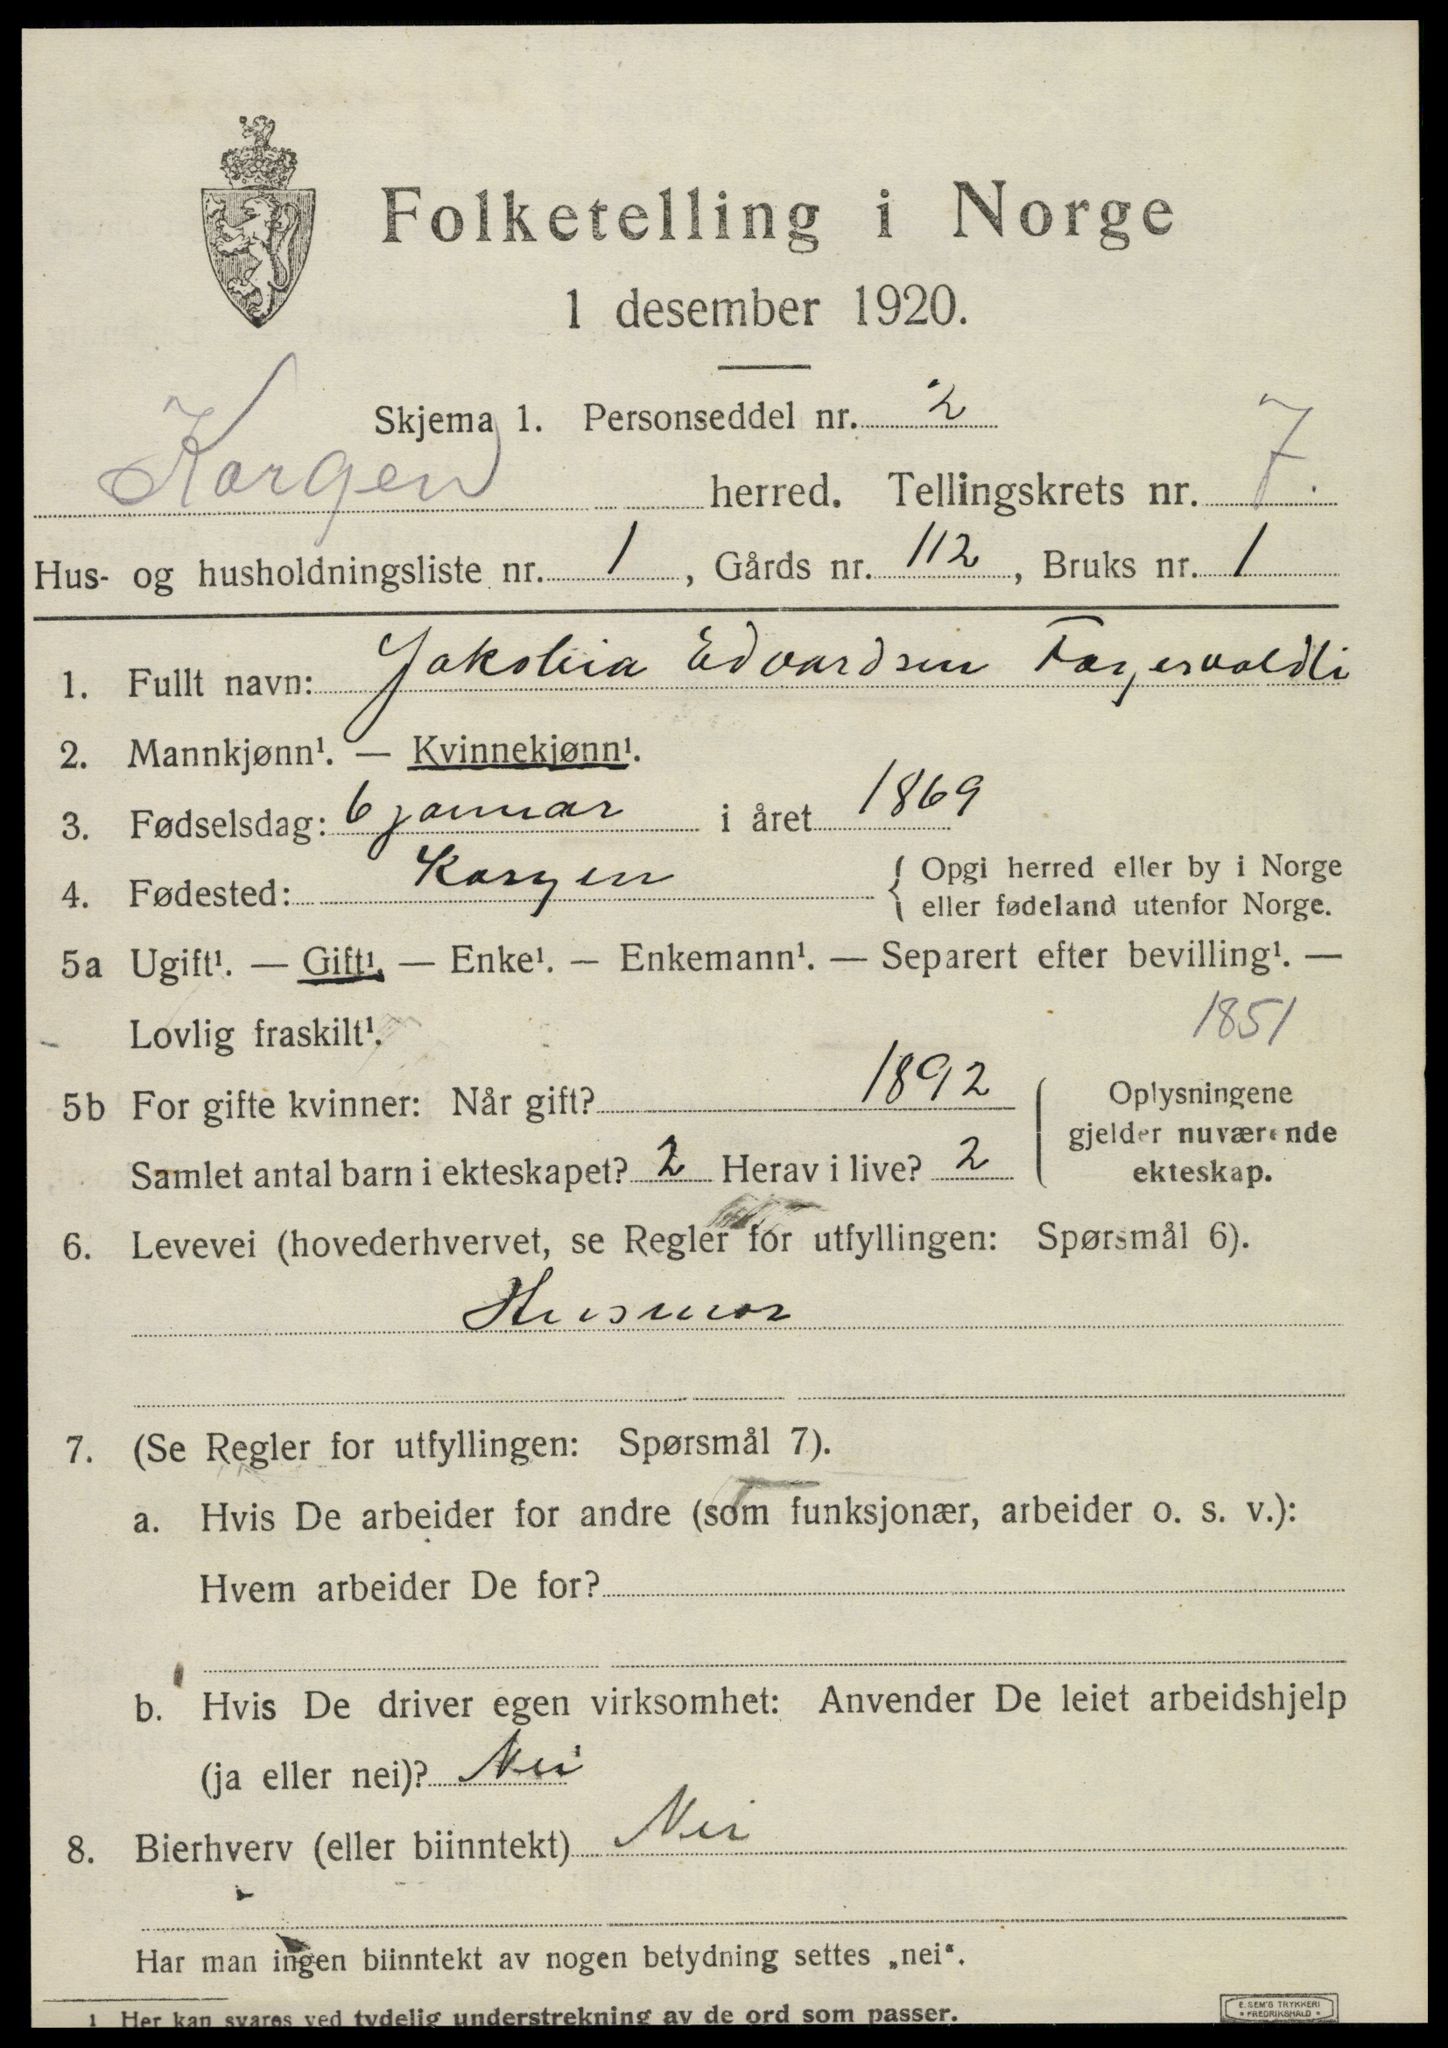 Folketelling i Norge
1 desember 1920.
Skjema 1. Personseddel nr. 2
Korgen herred. Tellingskrets nr. 7.
Hus- og husholdningsliste nr. 1, Gårds nr. 112, Bruks nr. 1
1. Fullt navn: Jakobia Edvardsen Fagervoldli
2. Mannkjønn¹. — Kvinnekjønn¹.
3. Fødselsdag: 6 januar i året 1869
4. Fødested: Korgen { Opgi herred eller by i Norge
eller fødeland utenfor Norge.
5a Ugift¹. — Gift¹. — Enke¹. — Enkemann¹. — Separert efter bevilling¹. —
Lovlig fraskilt¹.
1851
5b For gifte kvinner: Når gift? 1892
Samlet antal barn i ekteskapet? 2 Herav i live? 2
Oplysningene
gjelder nuværende
ekteskap.
6. Levevei (hovederhvervet, se Regler for utfyllingen: Spørsmål 6).
Husmor
7. (Se Regler for utfyllingen: Spørsmål 7).
a. Hvis De arbeider for andre (som funksjonær, arbeider o. s. v.):
Hvem arbeider De for?
b. Hvis De driver egen virksomhet: Anvender De leiet arbeidshjelp
(ja eller nei)? Nei
8. Bierhverv (eller biinntekt) Nei
Har man ingen biinntekt av nogen betydning settes „nei“.
1 Her kan svares ved tydelig understrekning av de ord som passer.
E. SEM'S TRYKKERI
FREDRIKSHALD